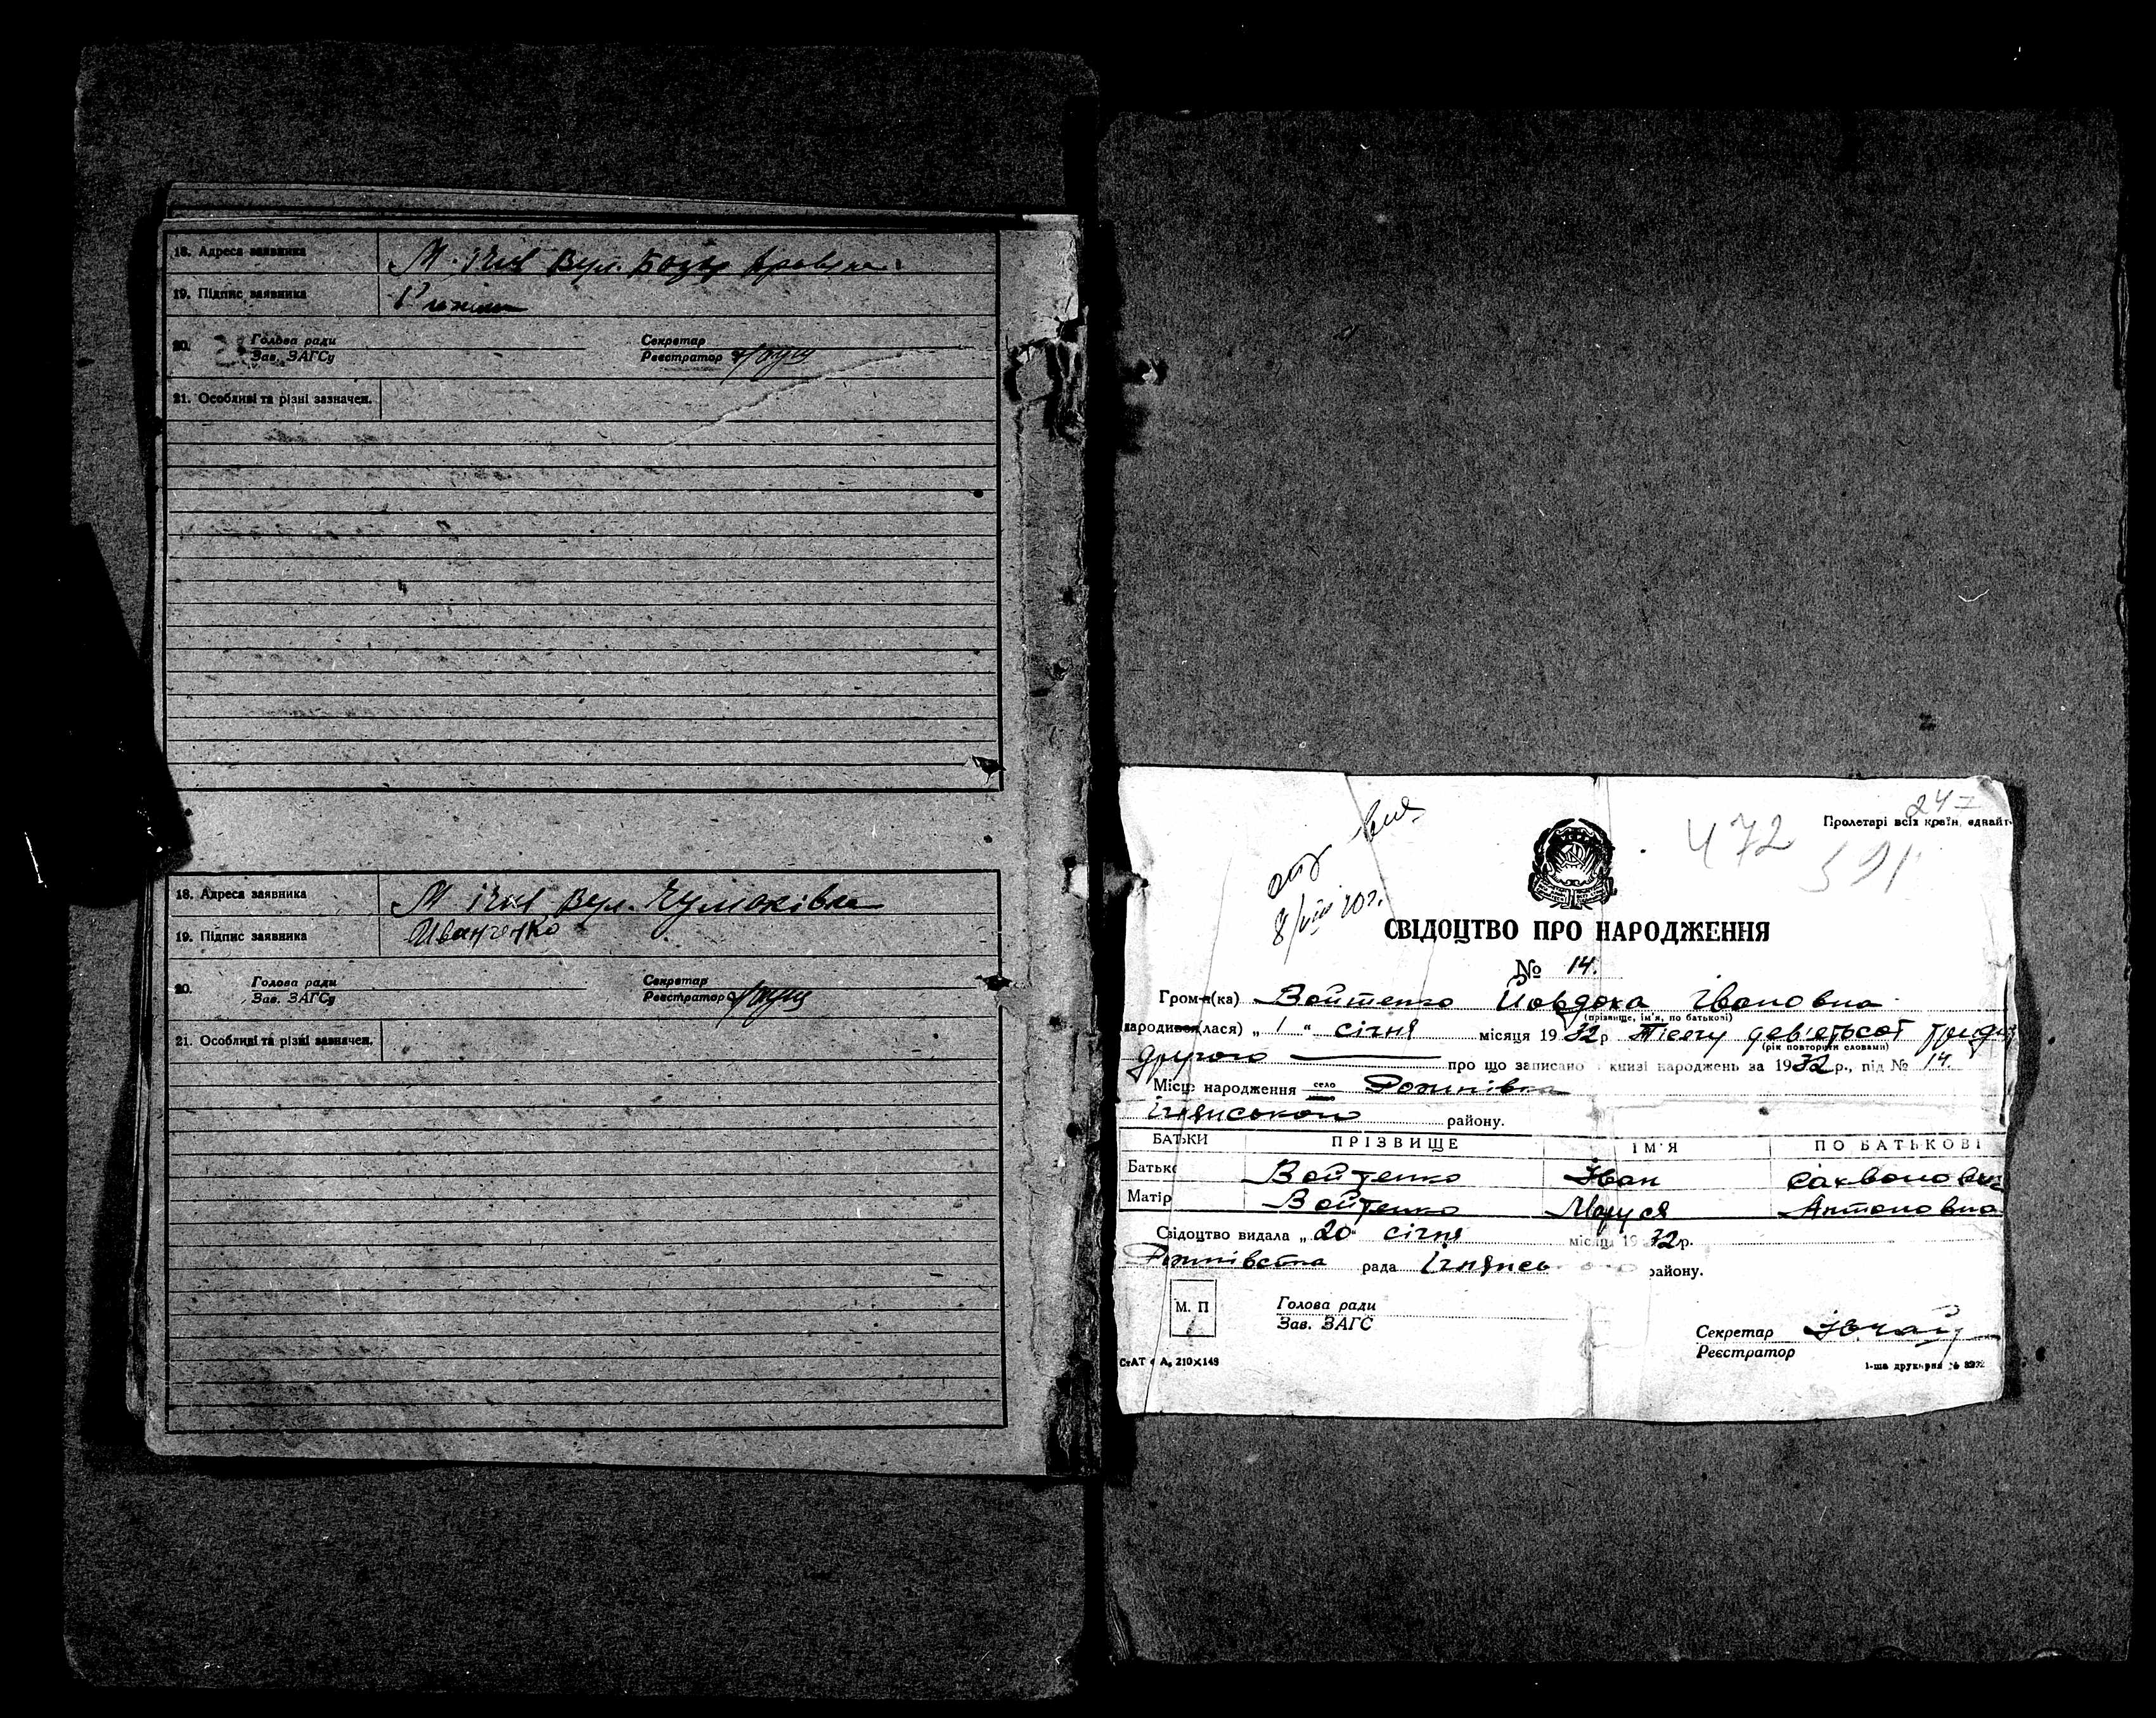 18. Адреса заявника М. Ічня Вул.
19. Підпис заявника
20. Голова ради Секретар
Зав. ЗАГСу Реєстратор
21. Особливі та різні зазначен.
18. Адреса заявника М Ічня Вул. Чумаківка
19. Підпис заявника Иванченко
20. Голова ради Секретар
Зав. ЗАГСу Реєстратор
21. Особливі та різні зазначен.
247
Пролетарі всіх країн, єднайт
472
8/VIII 40 г.
СВІДОЦТВО ПРО НАРОДЖЕННЯ
№ 14.
Гром-н(ка) Войтенко Йовдоха Івановна
(прізвище, ім'я, по батькові)
народився(лася) „ 1 " січня місяця 1932 р. Тисячу дев'ятьсот тридц
(рік повторити словами)
другого про що записано в книзі народжень за 1932 р., під № 14.
Місце народження село Рожнівка
Ічнянського району.
БАТЬКИ ПРІЗВИЩЕ ІМ'Я ПО БАТЬКОВІ
Батько Войтенко Іван
Матір Войтенко Маруся Антоновна
Свідоцтво видала „ 20 " січня місяця 1932 р.
Рожнівська рада району.
М. П
Голова ради
Зав. ЗАГС
Секретар
Реєстратор
СтАТ 4 А₅ 210×149
1-ша друкарня